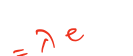 = λ e